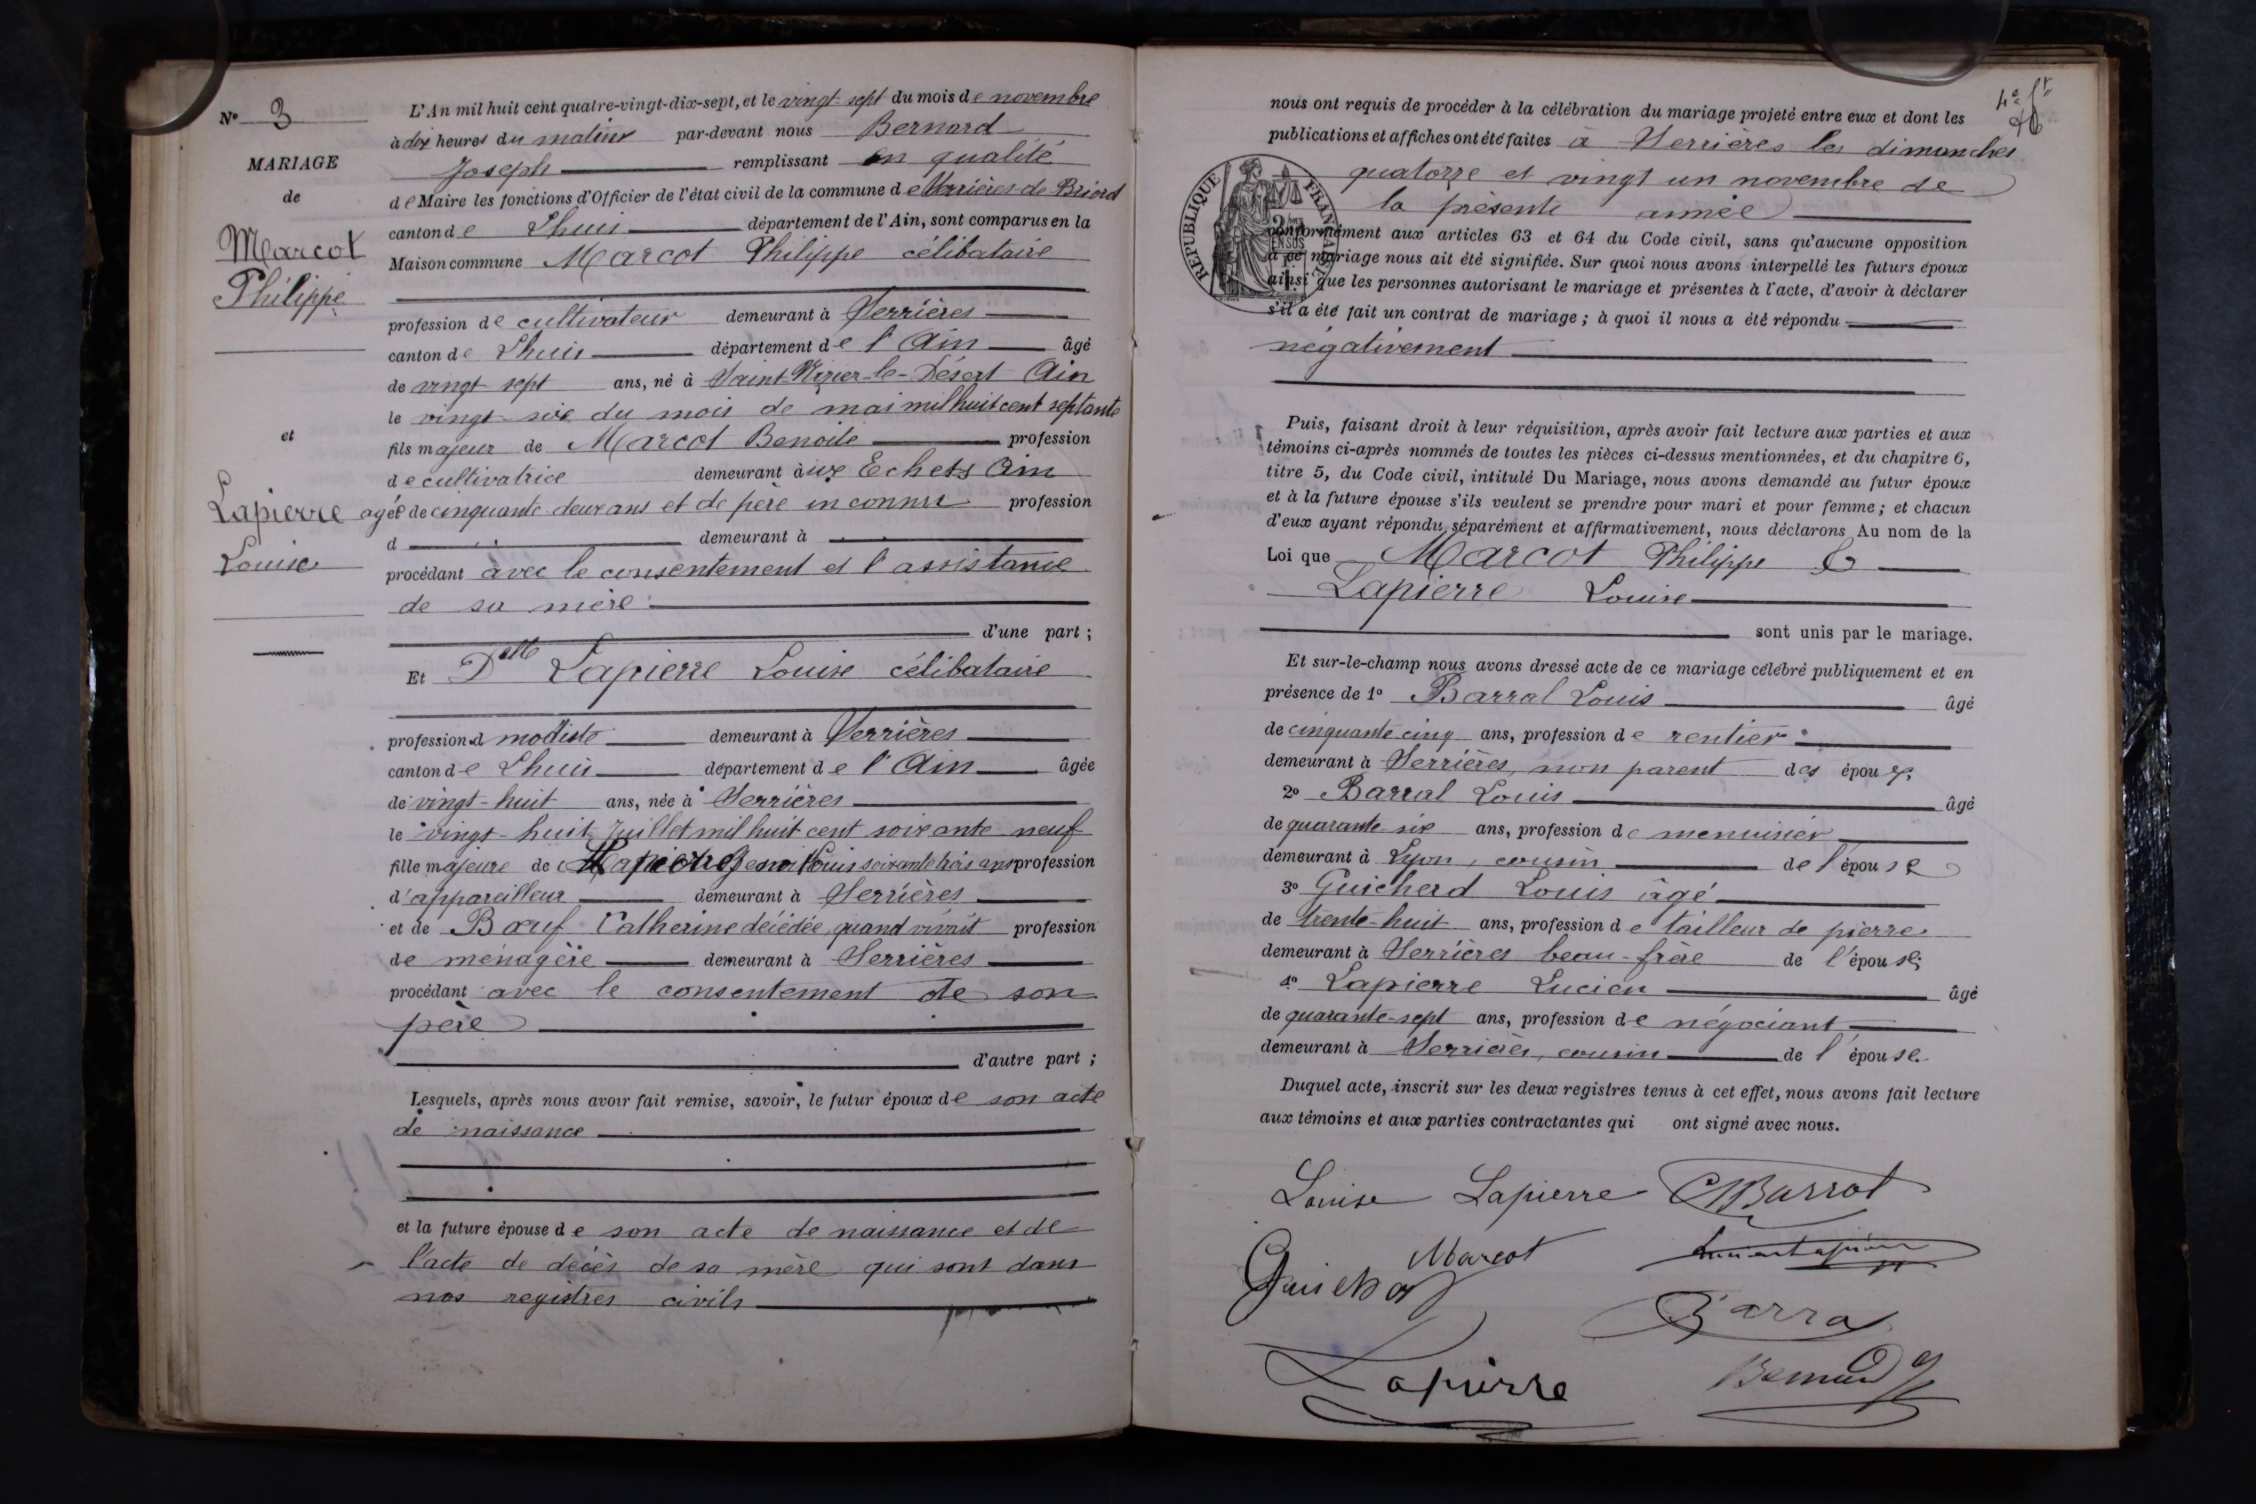 N° 3
MARIAGE
de
Marcot
Philippe
et
Lapierre
Louise
L'An mil huit cent quatre-vingt-dix-sept, et le vingt-sept du mois de novembre
à dix heures du matin par-devant nous Bernard
Joseph remplissant en qualité
de Maire les fonctions d'Officier de l'état civil de la commune de Serrières-de-Briord
canton de Lhuis département de l'Ain, sont comparus en la
Maison commune Marcot Philippe célibataire
profession de cultivateur demeurant à Serrières
canton de Lhuis département de l'Ain âgé
de vingt-sept ans, né à Saint-Nizier-le-Désert Ain
le vingt-six du mois de mai mil huit cent septante
fils majeur de Marcot Benoite profession
de cultivatrice demeurant aux Echets Ain
agée de cinquante deux ans et de père inconnu profession
d demeurant à
procédant avec le consentement et l'assistance
de sa mère
d'une part ;
Et Delle Lapierre Louise célibataire
profession d modiste demeurant à Serrières
canton de Lhuis département de l'Ain âgée
de vingt-huit ans, née à Serrières
le vingt-huit Juillet mil huit cent soixante neuf
fille majeure de Louis soixante trois ans profession
d'appareilleur demeurant à Serrières
et de Bœuf Catherine décédée, quand vivait profession
de ménagère demeurant à Serrières
procédant avec le consentement de son
père
d'autre part ;
Lesquels, après nous avoir fait remise, savoir, le futur époux de son acte
de naissance
et la future épouse de son acte de naissance et de
l'acte de décès de sa mère qui sont dans
nos registres civils
nous ont requis de procéder à la célébration du mariage projeté entre eux et dont les
publications et affiches ont été faites à Serrières les dimanches
quatorze et vingt un novembre de
la présente année
RÉPUBLIQUE FRANÇAISE
conformément aux articles 63 et 64 du Code civil, sans qu'aucune opposition
à ce mariage nous ait été signifiée. Sur quoi nous avons interpellé les futurs époux
ainsi que les personnes autorisant le mariage et présentes à l'acte, d'avoir à déclarer
s'il a été fait un contrat de mariage ; à quoi il nous a été répondu
négativement
Puis, faisant droit à leur réquisition, après avoir fait lecture aux parties et aux
témoins ci-après nommés de toutes les pièces ci-dessus mentionnées, et du chapitre 6,
titre 5, du Code civil, intitulé Du Mariage, nous avons demandé au futur époux
et à la future épouse s'ils veulent se prendre pour mari et pour femme ; et chacun
d'eux ayant répondu séparément et affirmativement, nous déclarons Au nom de la
Loi que Marcot Philippe &
Lapierre Louise
sont unis par le mariage.
Et sur-le-champ nous avons dressé acte de ce mariage célébré publiquement et en
présence de 1° Barral Louis âgé
de cinquante cinq ans, profession de rentier
demeurant à Serrières, non parent des époux.
2° Barral Louis âgé
de quarante six ans, profession de menuisier
demeurant à Lyon, cousin de l'épouse
3° Guicherd Louis âgé
de trente-huit ans, profession de tailleur de pierres
demeurant à Serrières beau-frère de l'épouse;
4° Lapierre Lucien âgé
de quarante-sept ans, profession de négociant
demeurant à Serrières, cousin de l'épouse.
Duquel acte, inscrit sur les deux registres tenus à cet effet, nous avons fait lecture
aux témoins et aux parties contractantes qui ont signé avec nous.
Louise Lapierre Barral
Marcot Lucien Lapierre
Guicherd
Barral
Lapierre Bernard